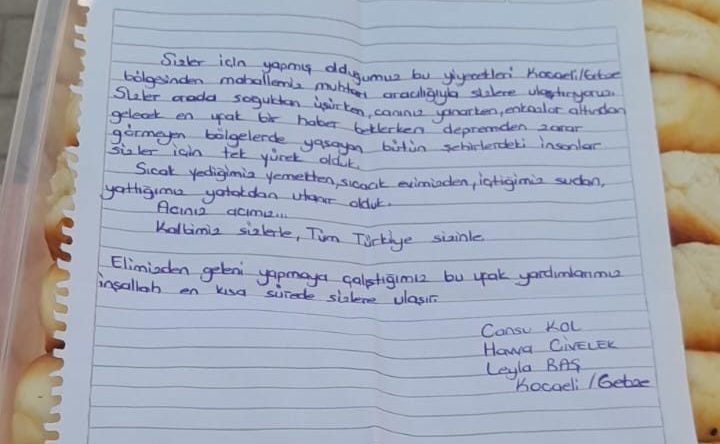 Sizler için yapmış olduğumuz bu yiyecekleri Kocaeli/Gebze
bölgesinden mahallemiz muhtarı aracılığıyla sizlere ulaştırıyoruz.
Sizler orada soğuktan üşürken, canınız yanarken, enkazlar altından
gelecek en ufak bir haber beklerken depremden zarar
görmeyen bölgelerde yaşayan bütün şehirlerdeki insanlar
sizler için tek yürek olduk.
Sıcak yediğimiz yemekten, sıcacık evimizden, içtiğimiz sudan,
yattığımız yatakdan utanır olduk.
Acınız acımız...
Kalbimiz sizlerle, Tüm Türkiye sizinle
Elimizden geleni yapmaya çalıştığımız bu ufak yardımlarımız
inşallah en kısa sürede sizlere ulaşır.
Cansu KOL
Havva CİVELEK
Leyla BAŞ
Kocaeli /Gebze